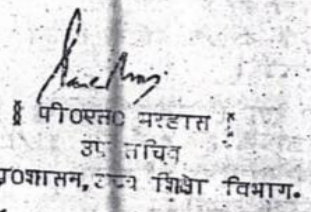 पी०एस० मरहास
उप सचिव
प्र०शासन, उच्च शिक्षा विभाग.